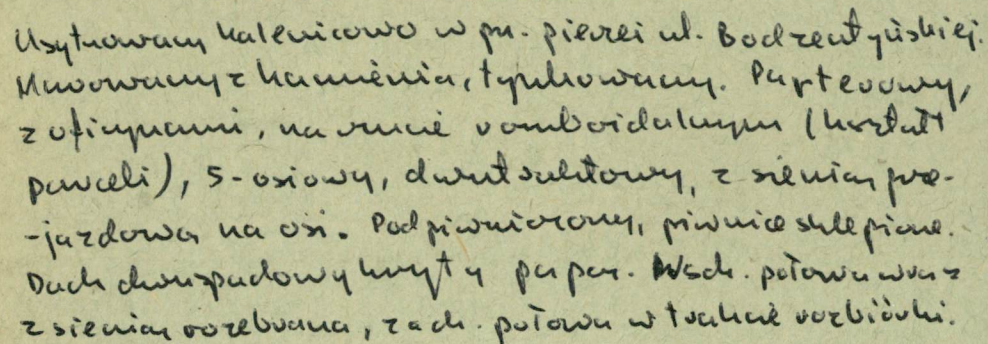 Usytuowany kalenicowo w pn. pierzei ul. Bodzentyńskiej.
Murowany z kamienia, tynkowany. Parterowy,
z oficynami, na rzucie romboidalnym (kształt
parceli), 5-osiowy, dwutraktowy, z sienią prze-
-jazdową na osi. Podpiwniczony, piwnice sklepione.
Dach dwuspadowy kryty papą. Wsch. połowa wraz
z sienią rozebrana, zach. połowa w trakcie rozbiórki.